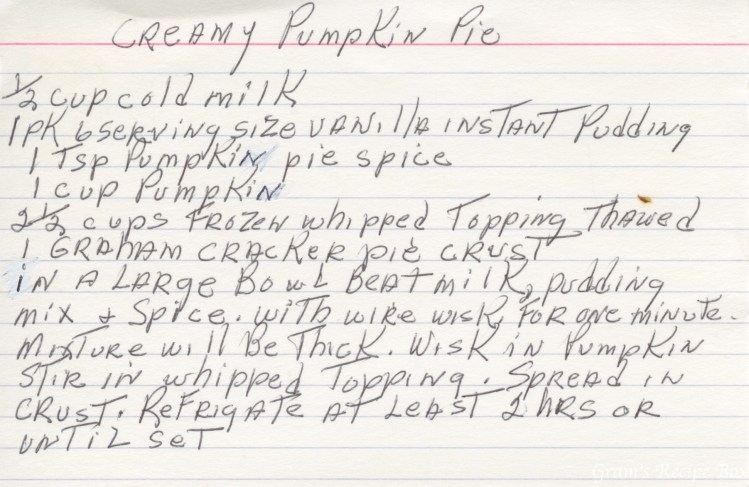 CREAMY PumpKin Pie
1/2 cup cold milk
1 PK 6 serving size VANillA INSTANT Pudding
1 Tsp PumpKin pie spice
1 cup PumpKin
2 1/2 cups FROZEN whipped Topping Thawed
1 GRAHAM CRACKER pie CRUST
in A LARge Bowl Beat milk, pudding
mix & Spice. with wire wisk, For one minute.
Mixture will Be Thick. Wisk in PumpKin
Stir in whipped Topping. Spread in
CRUST. ReFRigATe AT LeasT 2 hrs or
unTil SeT
Gram's Recipe Box